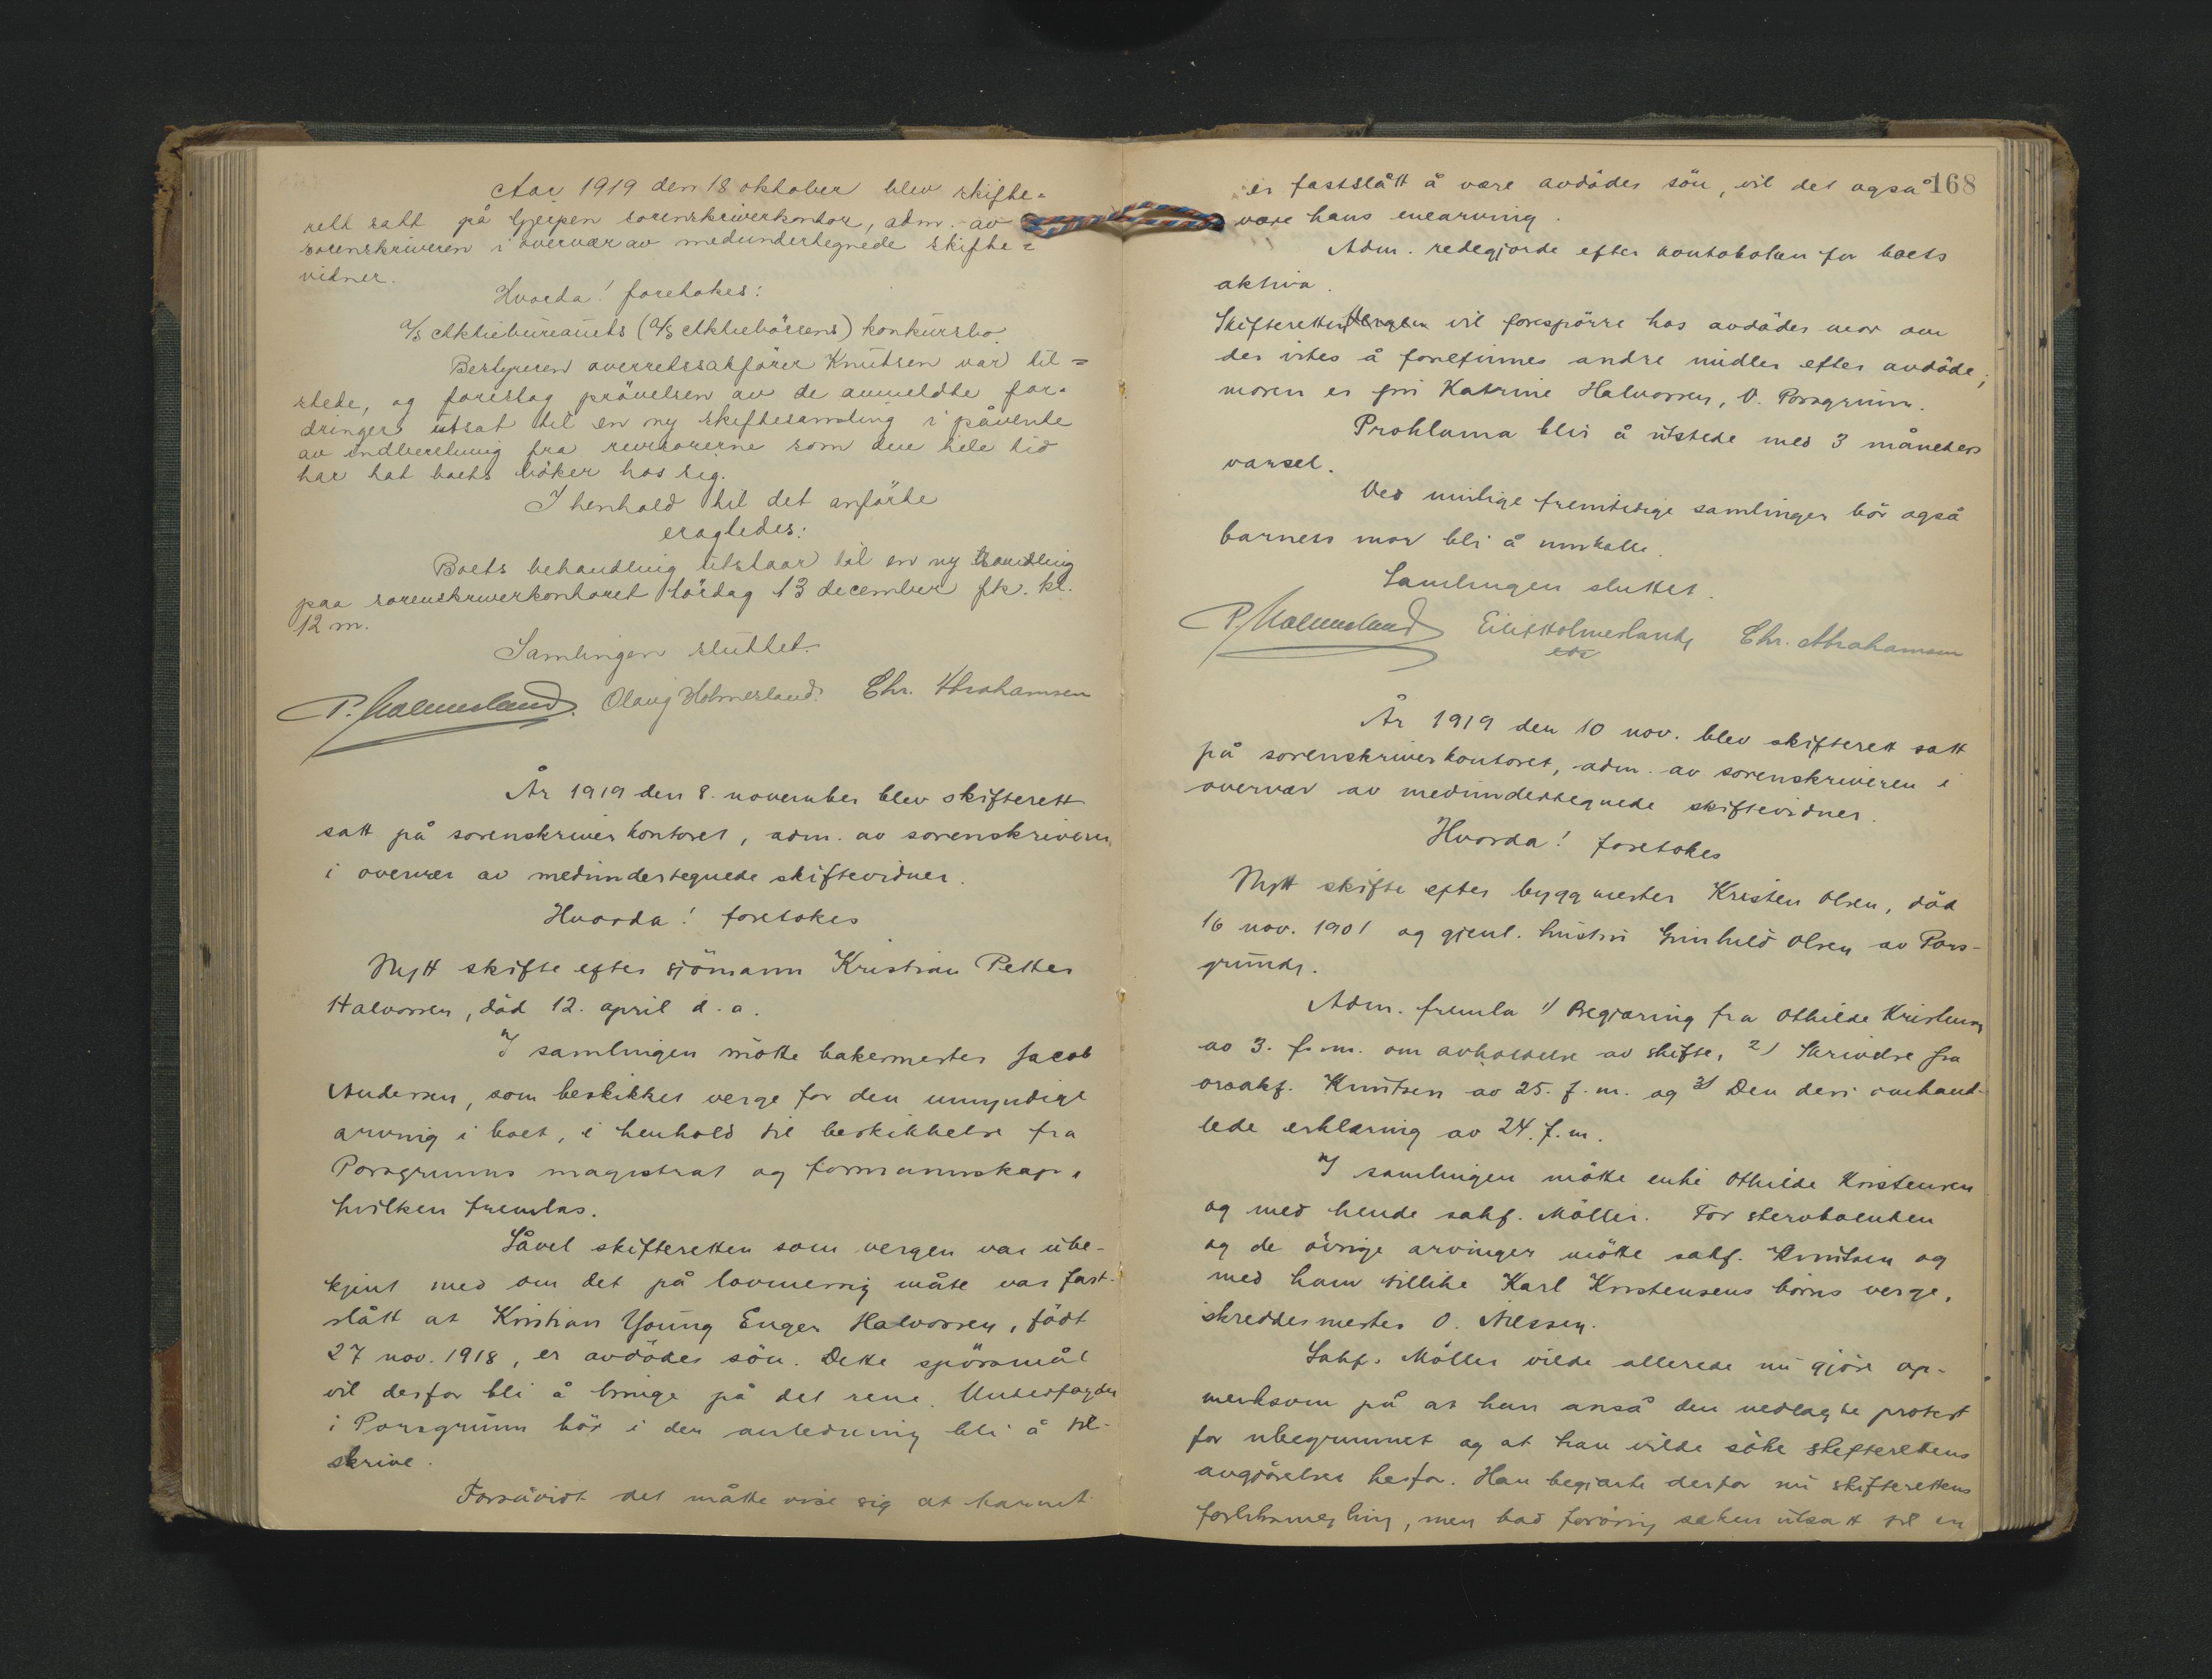 Aar 1919 den 18 oktober blev skifte=
rett satt på Gjerpen sorenskriverkontor, adm. av
sorenskriveren i overvær av medundertegnede skifte=
vidner.
Hvorda! foretokes:
A/S Aktiebureauets (A/S Aktiebörsens) konkursbo.
Bestyreren overretssakfører Knutsen var til=
stede, og foreslog prövelsen av de anmeldte for-
dringer utsat til en ny skiftesamling i påvente
av indberetning fra revisorerne som den hele tid
har hat boets böker hos sig.
I henhold til det anförte
eragtedes:
Boets behandling utstaar til en ny samling
paa sorenskriverkontoret lördag 13 december fk. kl.
12 m.
Samlingen sluttet.
P. Holmesland. Olaug Holmesland. Chr. Abrahamsen
År 1919 den 8. november blev skifterett
satt på sorenskriverkontoret, adm. av sorenskriveren
i overvær av medundertegnede skiftevidner.
Hvorda! foretokes
Nytt skifte efter sjömann Kristian Petter
Halvorsen, död 12. april d.a.
I samlingen mötte bakermester Jacob
Andersen, som beskikket verge for den umyndige
arving i boet, i henhold til beskikkelse fra
Porsgrunns magistrat og formannskap,
hvilken fremlas.
Såvel skifteretten som vergen var ube-
kjent med om det på lovmessig måte var fast-
slått at Kristian Young Enger Halvorsen, född
27 nov. 1918, er avdödes sön. Dette spörsmål
vil derfor bli å bringe på det rene. Underfogden
i Porsgrunn bör i den anledning bli å til-
skrive.
Forsåvidt det måtte vise sig at barnet
168
er fastslått å være avdödes sön, vil det også
være hans enearving.
Adm. redegjorde efter kontoboken for boets
aktiva.
Skifteretten vil forespörre hos avdödes mor om
der vites å forefinnes andre midler efter avdöde;
moren er fru Katrine Halvorsen, V. Porsgrunn.
Proklama blir å utstede med 3 måneders
varsel.
Ved mulige fremtidige samlinger bör også
barnets mor bli å innkalle.
Samlingen sluttet.
P. Holmesland Eilif Holmesland Chr. Abrahamsen
År 1919 den 10 nov. blev skifterett satt
på sorenskriverkontoret, adm. av sorenskriveren i
overvær av medundertegnede skiftevidner.
Hvorda! foretokes
Nytt skifte efter byggmester Kristen Olsen, död
16 nov. 1901 og gjenl. hustru Gunhild Olsen av Pors-
grunn.
Adm. fremla 1) Begjæring fra Othilde Kristensen
av 3. f.m. om avholdelse av skifte, 2) Skrivelse fra
orsakf. Knutsen av 25. f.m. og 3) Den deri omhand-
lede erklæring av 24. f.m.
I samlingen mötte enke Othilde Kristensen
og med hende sakf. Möller. For stervboenken
og de övrige arvinger mötte sakf. Knutsen og
med ham tillike Karl Kristensens börns verge,
skreddermester O. Nilssen.
Sakf. Möller vilde allerede nu gjöre op-
merksom på at han anså den nedlagte protest
for ubegrunnet og at han vilde söke skifterettens
avgjörelse herfor. Han begjærte derfor nu skifterettens
forliksmegling, men bad forövrig saken utsatt til en